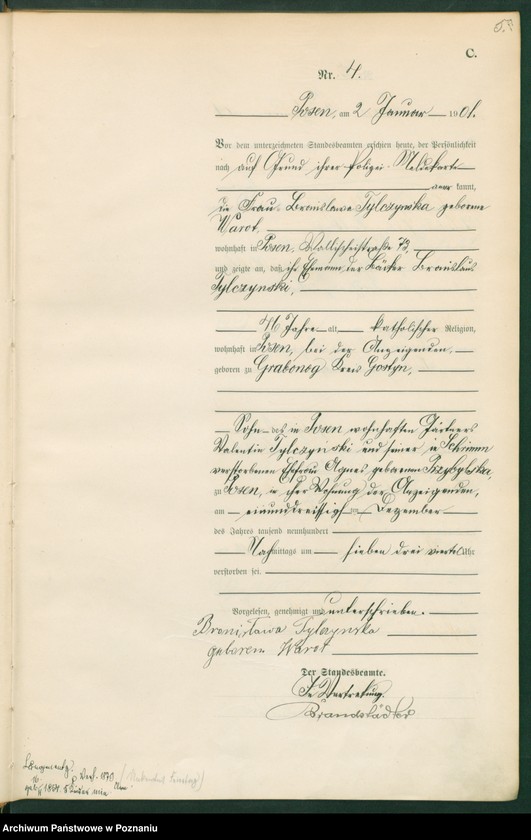 C.
Nr. 4.
Posen, am 2 Januar 1901.
Vor dem unterzeichneten Standesbeamten erschien heute, der Persönlichkeit
nach auf Grund ihrer Polizei-Meldekarte
kannt,
die Frau Bronislawa Tylczynska geborene
Warot,
wohnhaft in Posen, Wallischeistraße 73,
und zeigte an, daß ihr Ehemann, der Bäcker Bronislaus
Tylczynski,
46 Jahre alt, katholischer Religion,
wohnhaft in Posen, bei der Anzeigenden,
geboren zu Grabonog Kreis Gostyn,
Sohn des in Posen wohnhaften Gärtners
Valentin Tylczynski und seiner in Schrimm
verstorbenen Ehefrau Agnes geborenen Przybylska
zu Posen, in ihrer Wohnung der Anzeigenden,
am einunddreissigsten Dezember
des Jahres tausend neunhundert
Nachmittags um sieben drei viertel Uhr
verstorben sei.
Vorgelesen, genehmigt und unterschrieben.
Bronisława Tylczynska
geborene Warot
Der Standesbeamte.
In Vertretung.
Brandstädter
1870
Archiwum Państwowe w Poznaniu